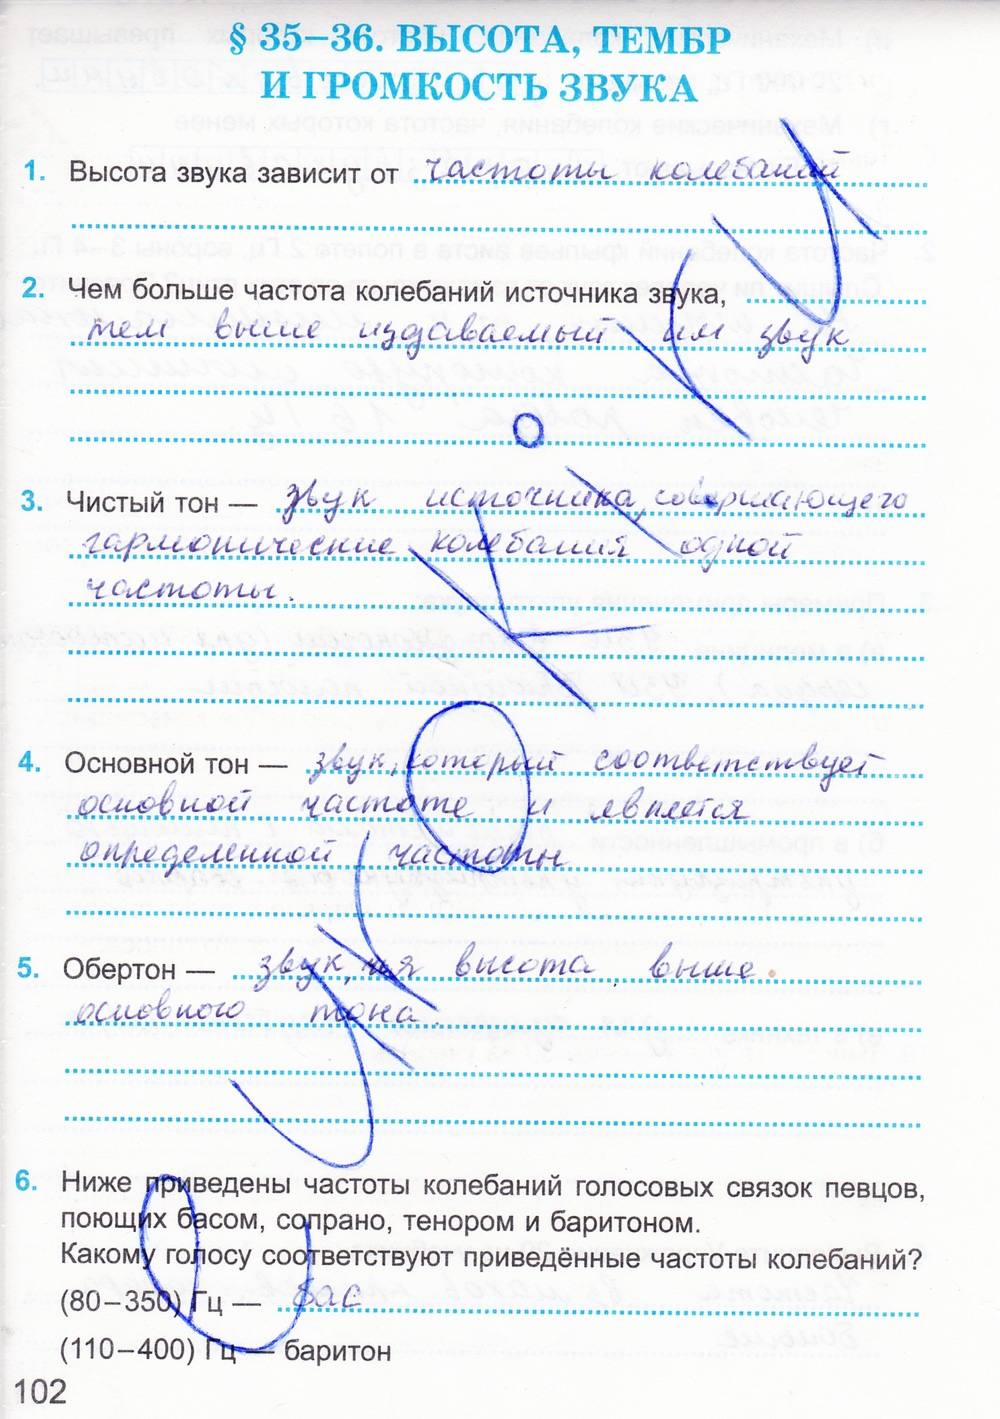 § 35–36. ВЫСОТА, ТЕМБР
И ГРОМКОСТЬ ЗВУКА
1. Высота звука зависит от частоты колебаний
2. Чем больше частота колебаний источника звука,
тем выше издаваемый им звук
3. Чистый тон — звук источника, совершающего
гармонические колебания одной
частоты.
4. Основной тон — звук, который соответствует
основной частоте и является
определенной частоты
5. Обертон — звук, чья высота выше
основного тона.
6. Ниже приведены частоты колебаний голосовых связок певцов,
поющих басом, сопрано, тенором и баритоном.
Какому голосу соответствуют приведённые частоты колебаний?
(80–350) Гц — бас
(110–400) Гц — баритон
102